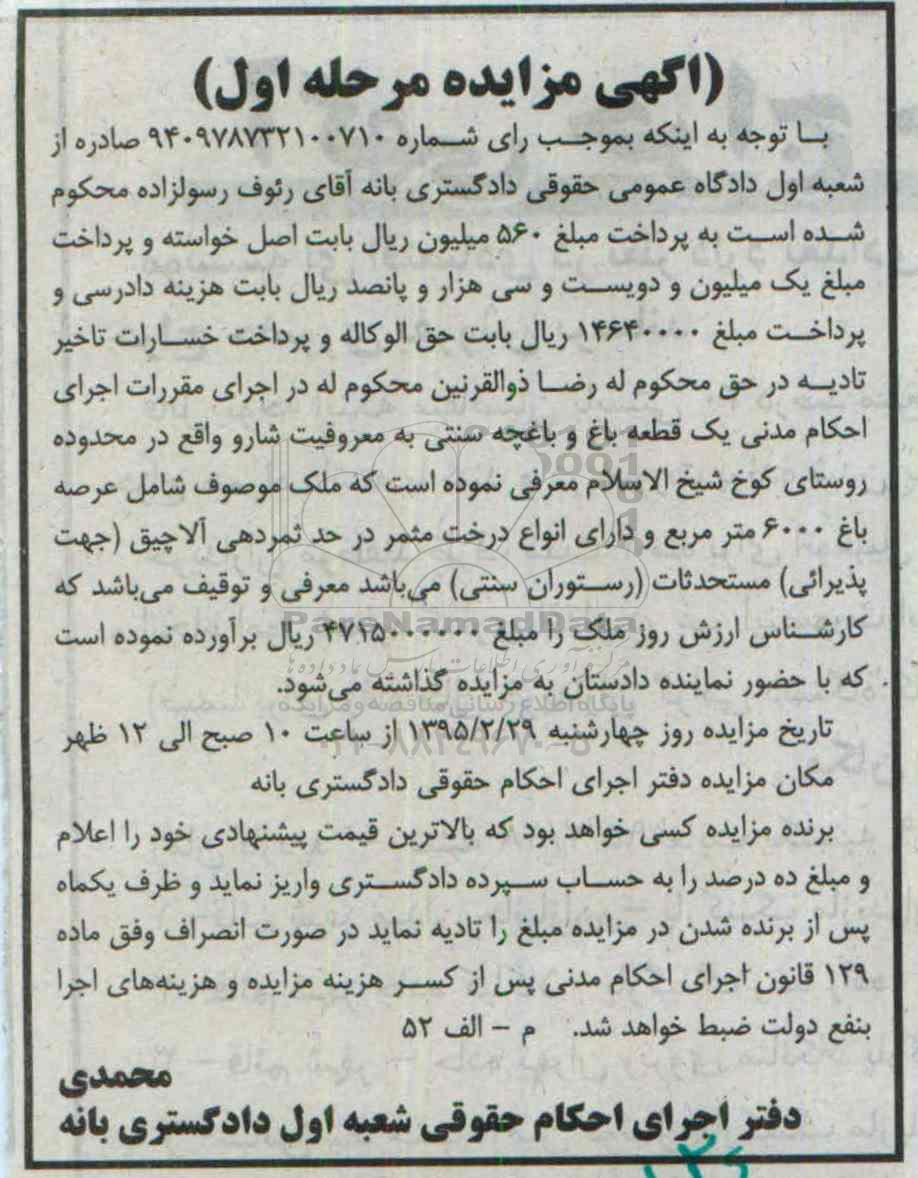 (آگهی مزایده مرحله اول)
با توجه به اینکه بموجب رای شماره ۹۴۰۹۷۸۷۳۲۱۰۰۷۱۰ صادره از
شعبه اول دادگاه عمومی حقوقی دادگستری بانه آقای رئوف رسولزاده محکوم
شده است به پرداخت مبلغ ۵۶۰ میلیون ریال بابت اصل خواسته و پرداخت
مبلغ یک میلیون و دویست و سی هزار و پانصد ریال بابت هزینه دادرسی و
پرداخت مبلغ ۱۴۶۴۰۰۰۰ ریال بابت حق الوکاله و پرداخت خسارات تاخیر
تادیه در حق محکوم له رضا ذوالقرنین محکوم له در اجرای مقررات اجرای
احکام مدنی یک قطعه باغ و باغچه سنتی به معروفیت شارو واقع در محدوده
روستای کوخ شیخ الاسلام معرفی نموده است که ملک موصوف شامل عرصه
باغ ۶۰۰۰ متر مربع و دارای انواع درخت مثمر در حد ثمردهی آلاچیق (جهت
پذیرائی) مستحدثات (رستوران سنتی) می‌باشد معرفی و توقیف می‌باشد که
ParsNamadData
کارشناس ارزش روز ملک را مبلغ ۴۷۱۵۰۰۰۰۰۰ ریال برآورده نموده است
که با حضور نماینده دادستان به مزایده گذاشته می‌شود.
پایگاه اطلاع رسانی مناقصه و مزایده
تاریخ مزایده روز چهارشنبه ۱۳۹۵/۲/۲۹ از ساعت ۱۰ صبح الی ۱۲ ظهر
مکان مزایده دفتر اجرای احکام حقوقی دادگستری بانه
برنده مزایده کسی خواهد بود که بالاترین قیمت پیشنهادی خود را اعلام
و مبلغ ده درصد را به حساب سپرده دادگستری واریز نماید و ظرف یکماه
پس از برنده شدن در مزایده مبلغ را تادیه نماید در صورت انصراف وفق ماده
۱۲۹ قانون اجرای احکام مدنی پس از کسر هزینه مزایده و هزینه‌های اجرا
بنفع دولت ضبط خواهد شد. م – الف ۵۲
محمدی
دفتر اجرای احکام حقوقی شعبه اول دادگستری بانه